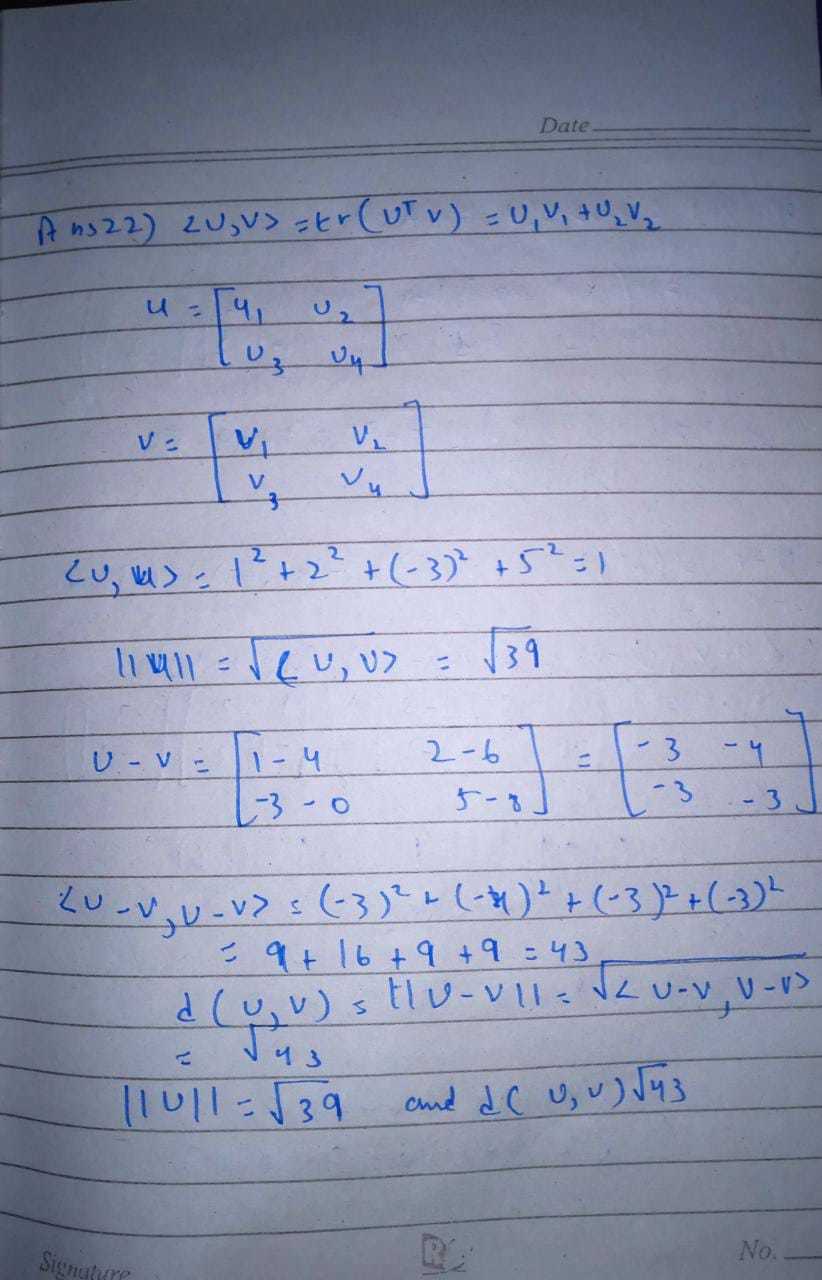 Date
Ans22) <U,V> = tr(U^T V) = U₁V₁ + U₂V₂
u = [u₁ U₂
U₃ U₄]
V = [V₁ V₂
V₃ V₄]
<U, U> = 1² + 2² + (-3)² + 5² = 1
||U|| = √<U, U> = √39
U - V = [1-4 2-6 = [-3 -4
-3-0 5-8] -3 -3]
<U-V, U-V> = (-3)² + (-4)² + (-3)² + (-3)²
= 9 + 16 + 9 + 9 = 43
d(U,V) = ||U-V|| = √<U-V, U-V>
= √43
||U|| = √39 and d(U,V) √43
Signature No.